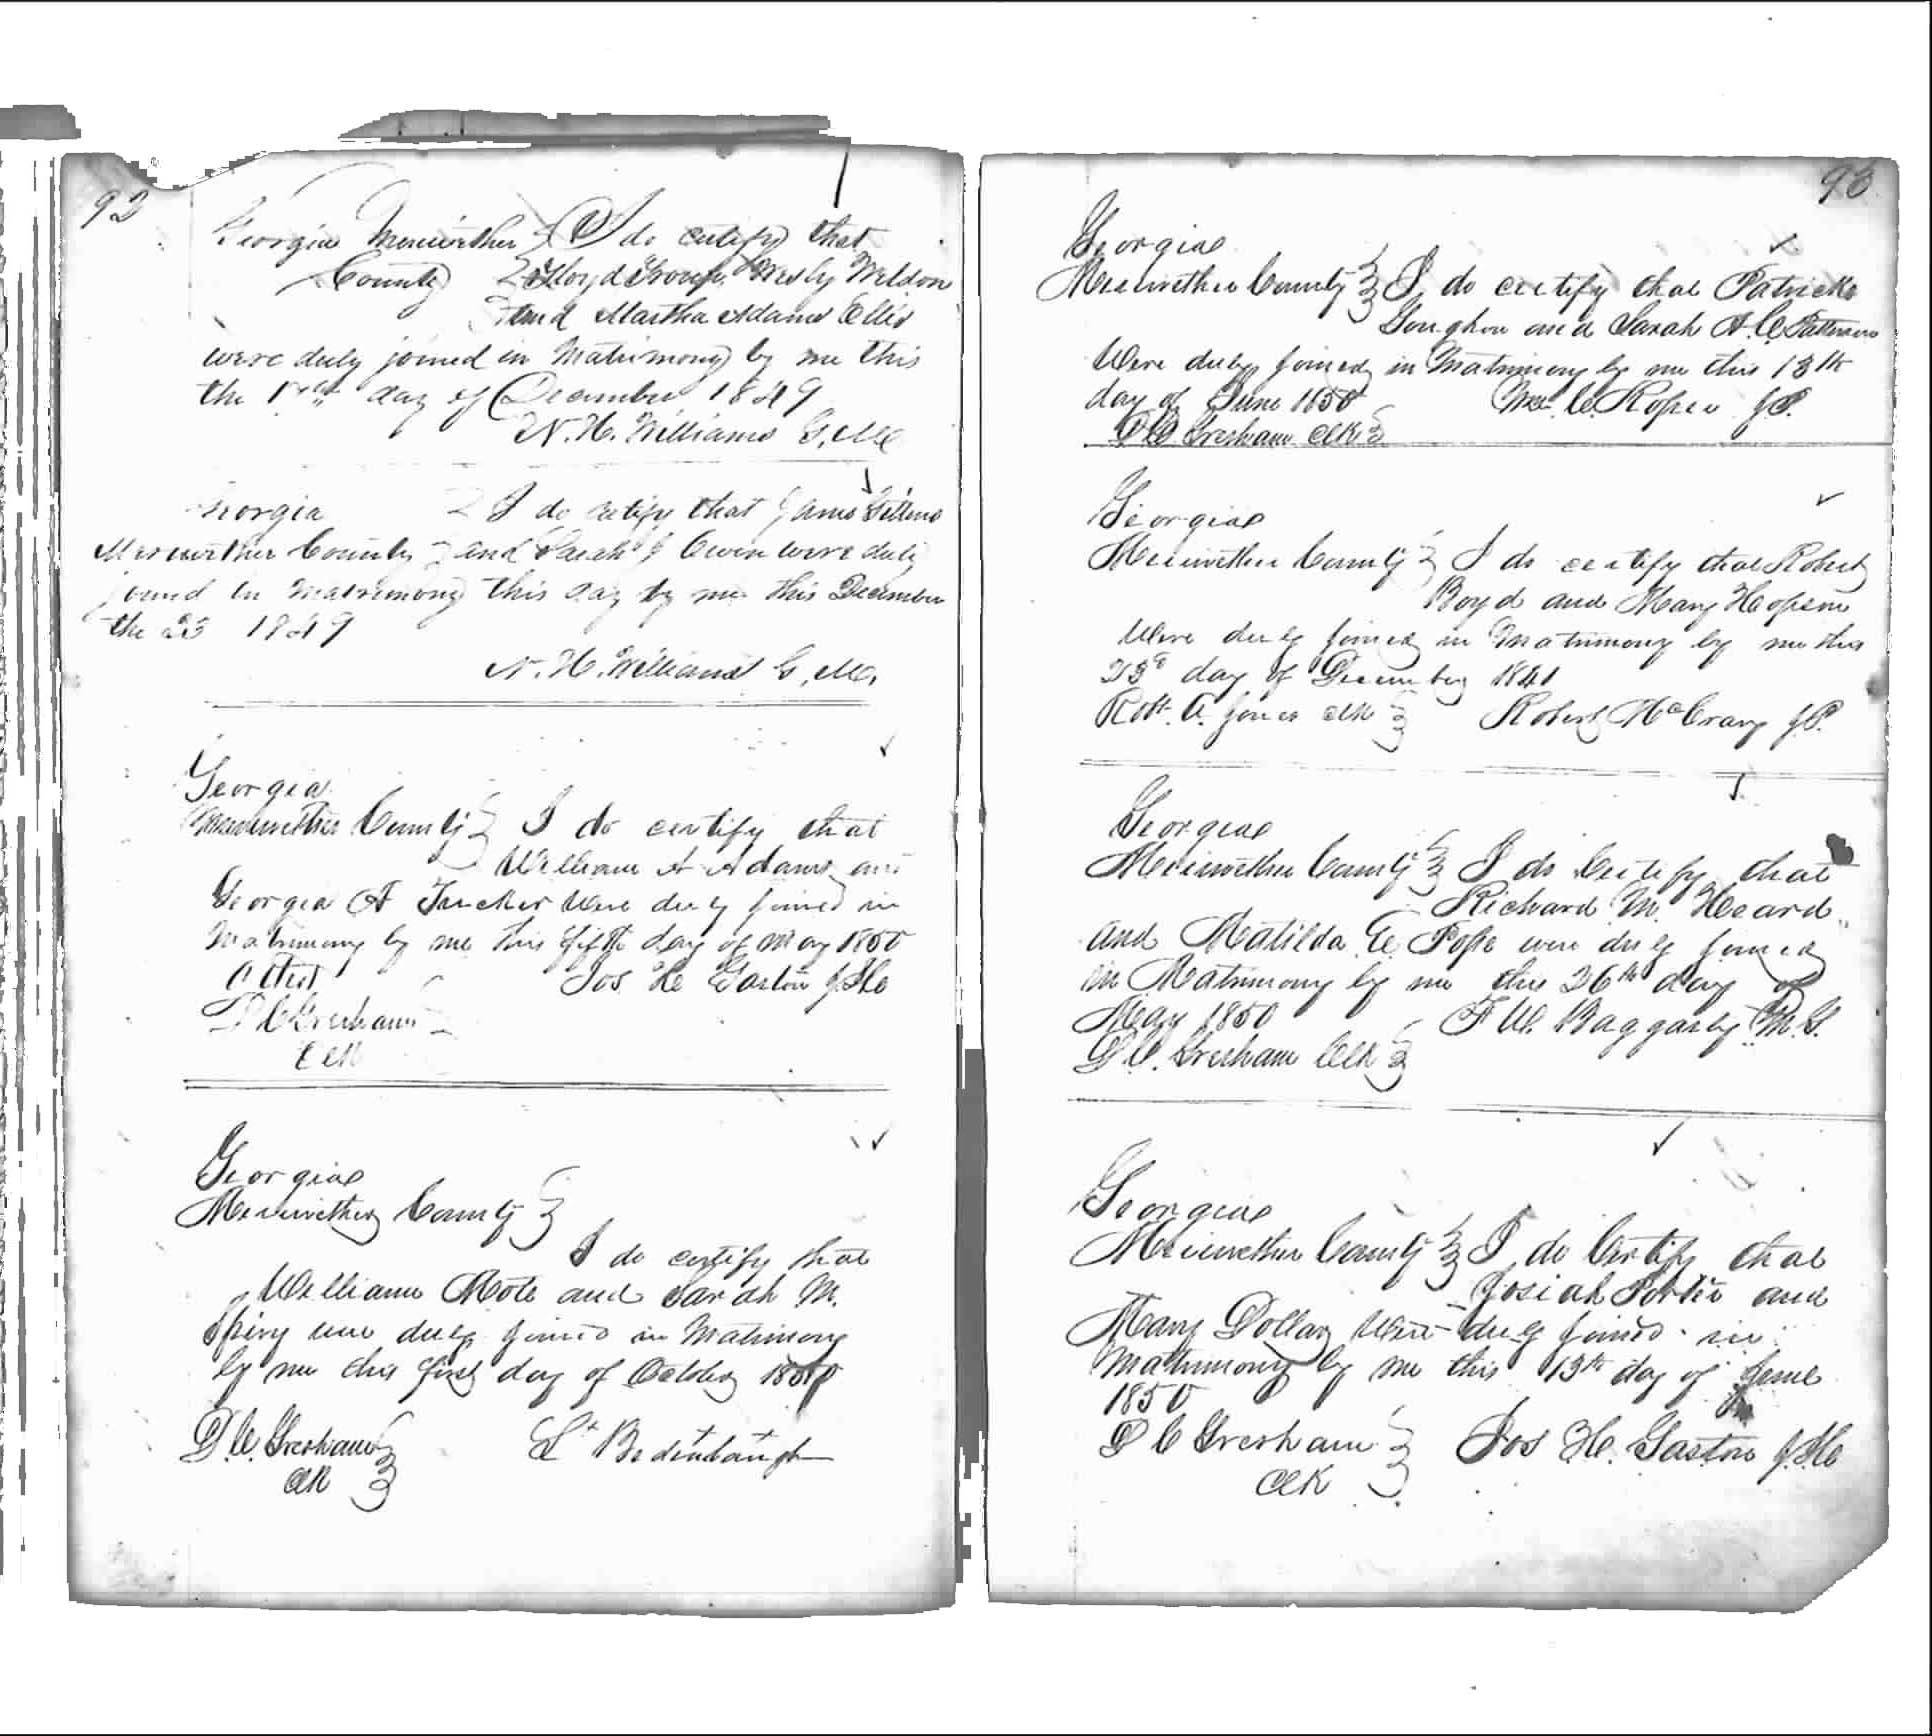 92
Georgia Meriwether I do certify that
County Wesly Weldon
and Martha Adams Ellis
were duly joined in Matrimony by me this
the day of December 1849
N. H. Williams G. M.
Georgia I do certify that James
Meriwether County and Sarah J Owen were duly
joined in Matrimony this day by me this December
the 23 1849
N. H. Williams G. M.
Georgia
Meriwether County I do certify that
William A Adams and
Georgia A Tucker were duly joined in
Matrimony by me this fifth day of May 1850
Attest Jos. H. Gaston J.I.C
D C Gresham
Clk
Georgia
Meriwether County
I do certify that
William Mote and Sarah M.
Spivy were duly joined in Matrimony
by me this first day of October 1850
D. C. Gresham Bedenbaugh
Clk
93
Georgia
Meriwether County I do certify that Patrick
and Sarah A. C. Patterson
Were duly joined in Matrimony by me this 13th
day of June 1850 Wm. C. Roper J.P.
D C Gresham Clk
Georgia
Meriwether County I do certify that Robert
Boyd and Mary Hopson
Were duly joined in Matrimony by me this
23d day of December 1841
Robt. A. Jones Clk Robert McCrary J.P.
Georgia
Meriwether County I do Certify that
Richard M. Heard
and Matilda C. Pope were duly joined
in Matrimony by me this 26th day of
May 1850 F. W. Baggarly M.G.
D. C. Gresham Clk
Georgia
Meriwether County I do Certify that
Josiah Porter and
Mary Dollar Were duly joined in
Matrimony by me this 13th day of June
1850
D C Gresham Jos H. Gaston J.I.C
Clk